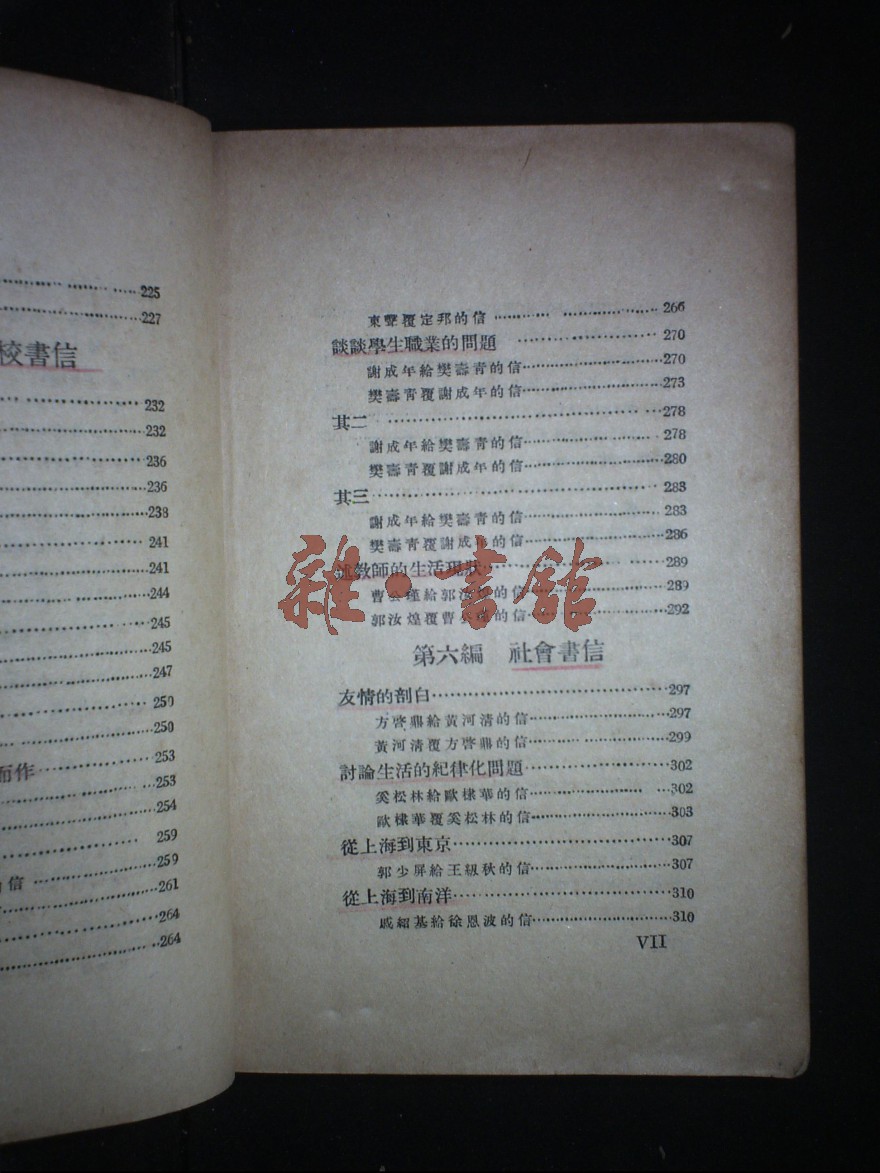 225
227
校書信
232
232
236
236
238
241
241
244
245
245
247
250
250
而作 253
253
254
259
信 259
261
264
264
東聲覆定邦的信 266
談談學生職業的問題 270
謝成年給樊壽青的信 270
樊壽青覆謝成年的信 273
其二 278
謝成年給樊壽青的信 278
樊壽青覆謝成年的信 280
其三 283
謝成年給樊壽青的信 283
樊壽青覆謝成年的信 286
述教師的生活現狀 289
曹公瑾給郭汝煌的信 289
郭汝煌覆曹公瑾的信 292
第六編 社會書信
友情的剖白 297
方啓鼎給黃河清的信 297
黃河清覆方啓鼎的信 299
討論生活的紀律化問題 302
奚松林給歐棣華的信 302
歐棣華覆奚松林的信 303
從上海到東京 307
郭少屏給王紉秋的信 307
從上海到南洋 310
戚紹基給徐恩波的信 310
VII
雜·書館